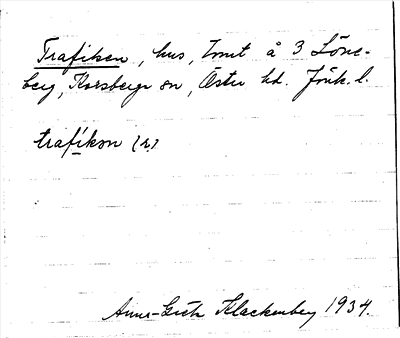 Trafiken, hus, 1 mt å 3 Löne-
berg, Korsberga sn, Östra hd. Jönk. l.
trafíkən (r)
Anna-Greta Klackenberg 1934.